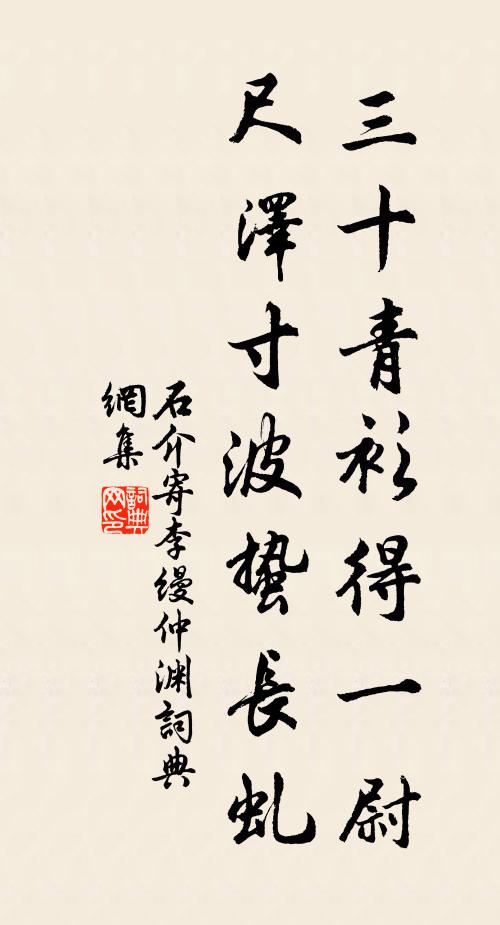 三十青衫得一尉
尺澤寸波蟄長虬
石介寄李縵仲淵詞典
網集
詞典
网印